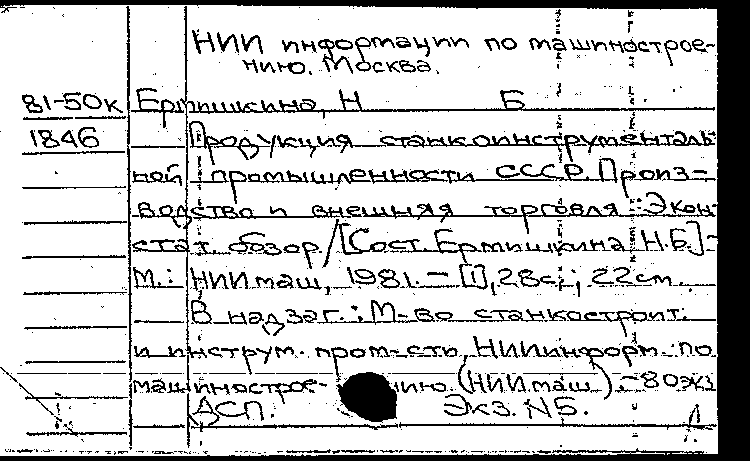 НИИ информации по машинострое-
нию. Москва.
81-50к Ермишкина, Н Б
1846 Продукция станкоинструменталь-
ной промышленности СССР. Произ-
водство и внешняя торговля: Экон.-
стат. обзор / [Сост. Ермишкина Н.Б.] -
М.: НИИмаш, 1981. - [1], 28с.; 22см.
В надзаг.: М-во станкостроит.
и инструм. пром-сти, НИИинформ. по
машинострое- нию (НИИмаш). - 80экз
ДСП. Экз. №5.